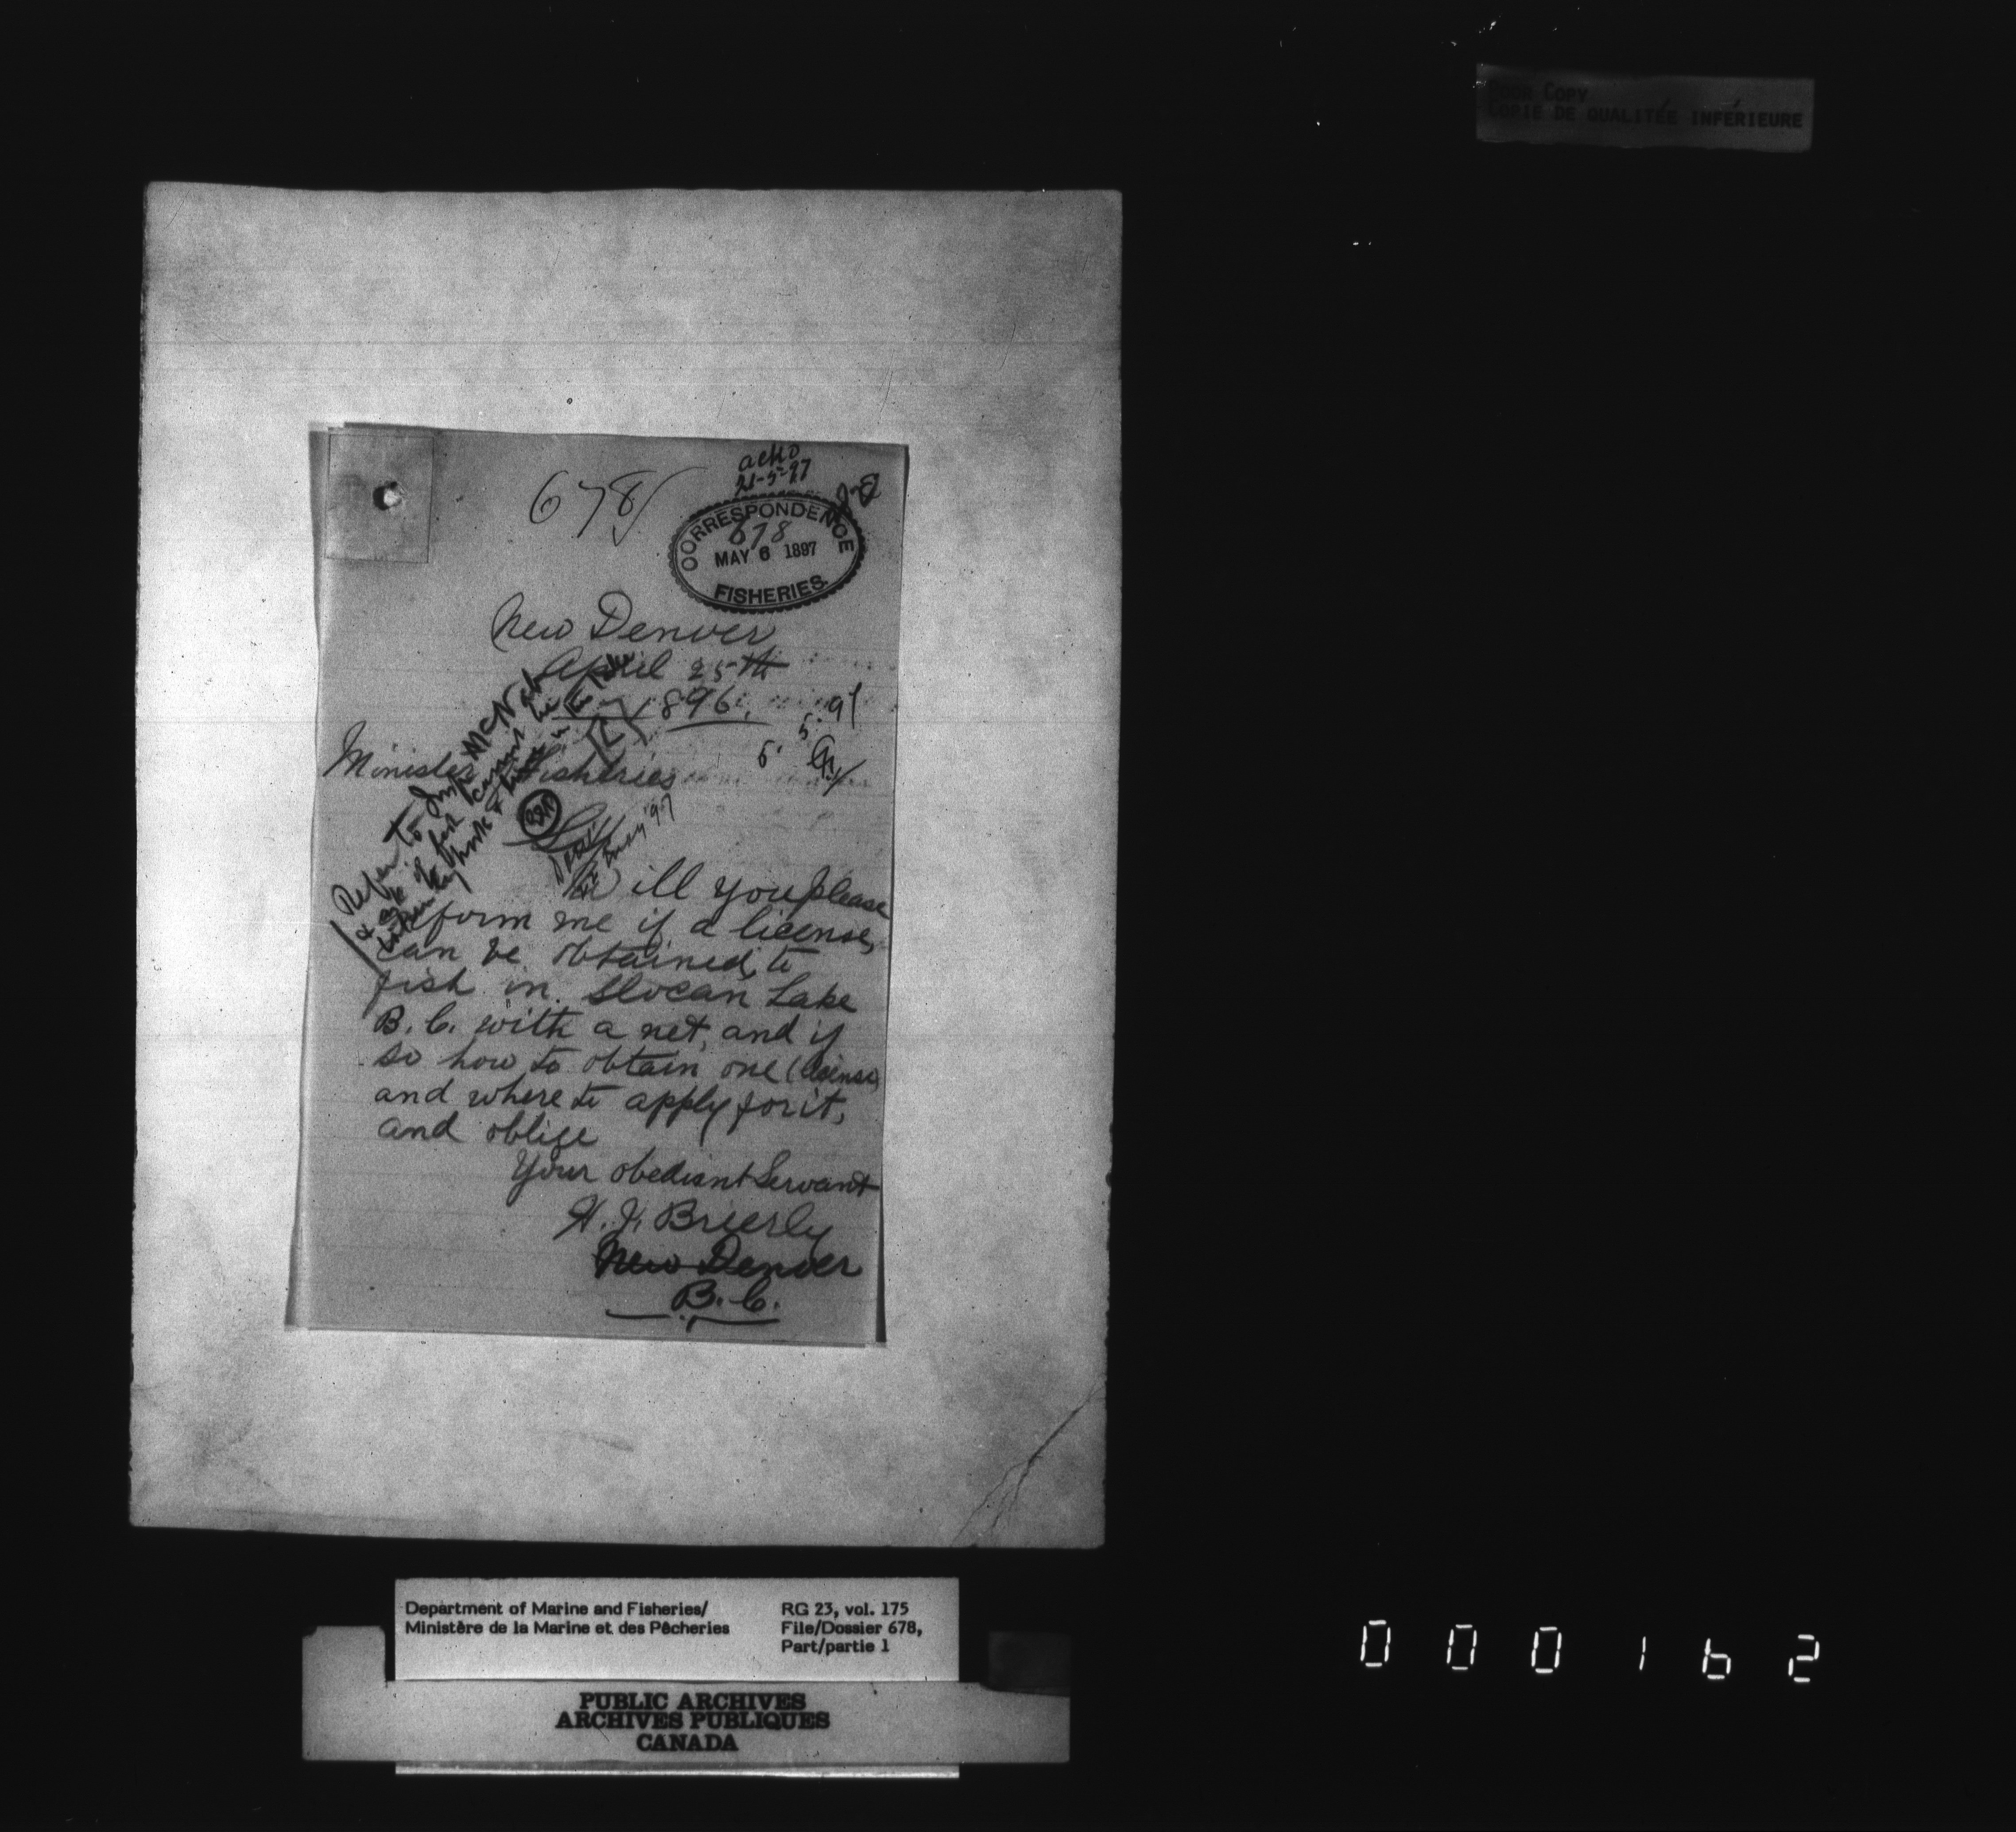 POOR COPY
COPIE DE QUALITÉE INFÉRIEURE
ackd
21-5-97
678
CORRESPONDENCE
678
MAY 6 1897
FISHERIES.
New Denver
April 25th
1896.
5. 5. 97
Minister Fisheries
Refer to Insp McNab
& ask if fish cannot be
taken by hook & line in the
Sir
May '97
Will you please
inform me if a license,
can be obtained, to
fish in Slocan Lake
B. C. with a net, and if
so how to obtain one (license)
and where to apply for it,
and oblige
Your obediant Servant
H. J. Brierly
New Denver
B. C.
Department of Marine and Fisheries/
Ministère de la Marine et des Pêcheries
RG 23, vol. 175
File/Dossier 678,
Part/partie 1
PUBLIC ARCHIVES
ARCHIVES PUBLIQUES
CANADA
000162